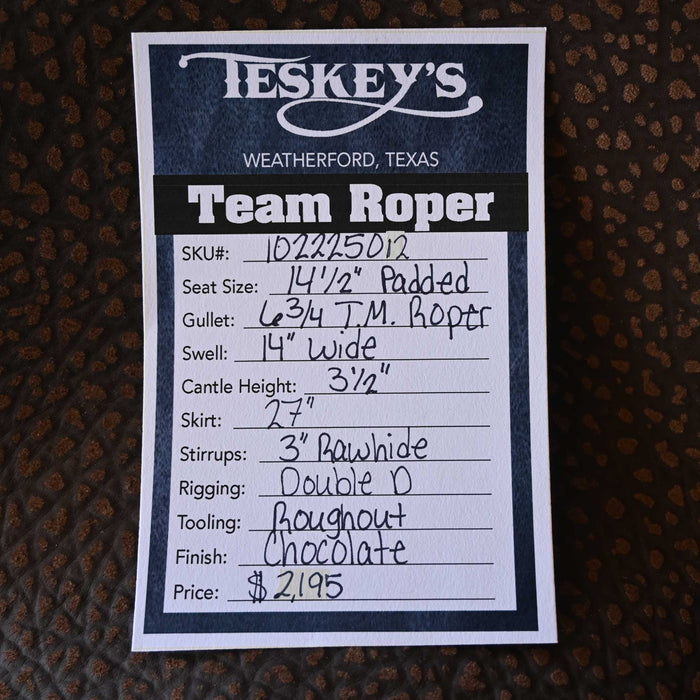 TESKEY'S
WEATHERFORD, TEXAS
Team Roper
SKU#: 102225012
Seat Size: 14 1/2" Padded
Gullet: 6 3/4 T.M. Roper
Swell: 14" Wide
Cantle Height: 3 1/2"
Skirt: 27"
Stirrups: 3" Rawhide
Rigging: Double D
Tooling: Roughout
Finish: Chocolate
Price: $ 2,195